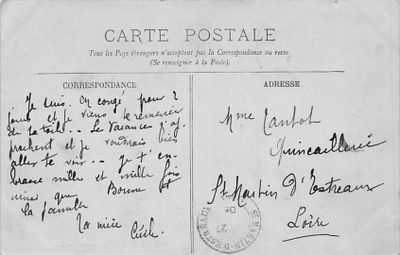 CARTE POSTALE
Tous les Pays étrangers n'acceptent pas la Correspondance au recto
(Se renseigner à la Poste).
CORRESPONDANCE
Je suis en congé pour 2
jours et je viens te remercier
de ta toile -- Les Vacances s'ap
prochent et je voudrais bien
aller te voir -- je t'em
brasse mille et mille fois
ainsi que Bonne
la famille
Ta nièce
Cécile
ADRESSE
Mme
Quincaillerie
St Martin d'Estreaux
Loire
ST MARTIN-D'ESTREAUX